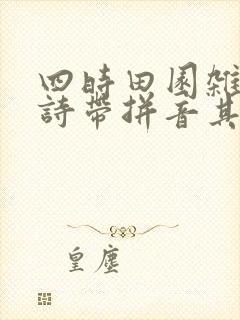 四時田園雜
詩帶拼音其
皇塵